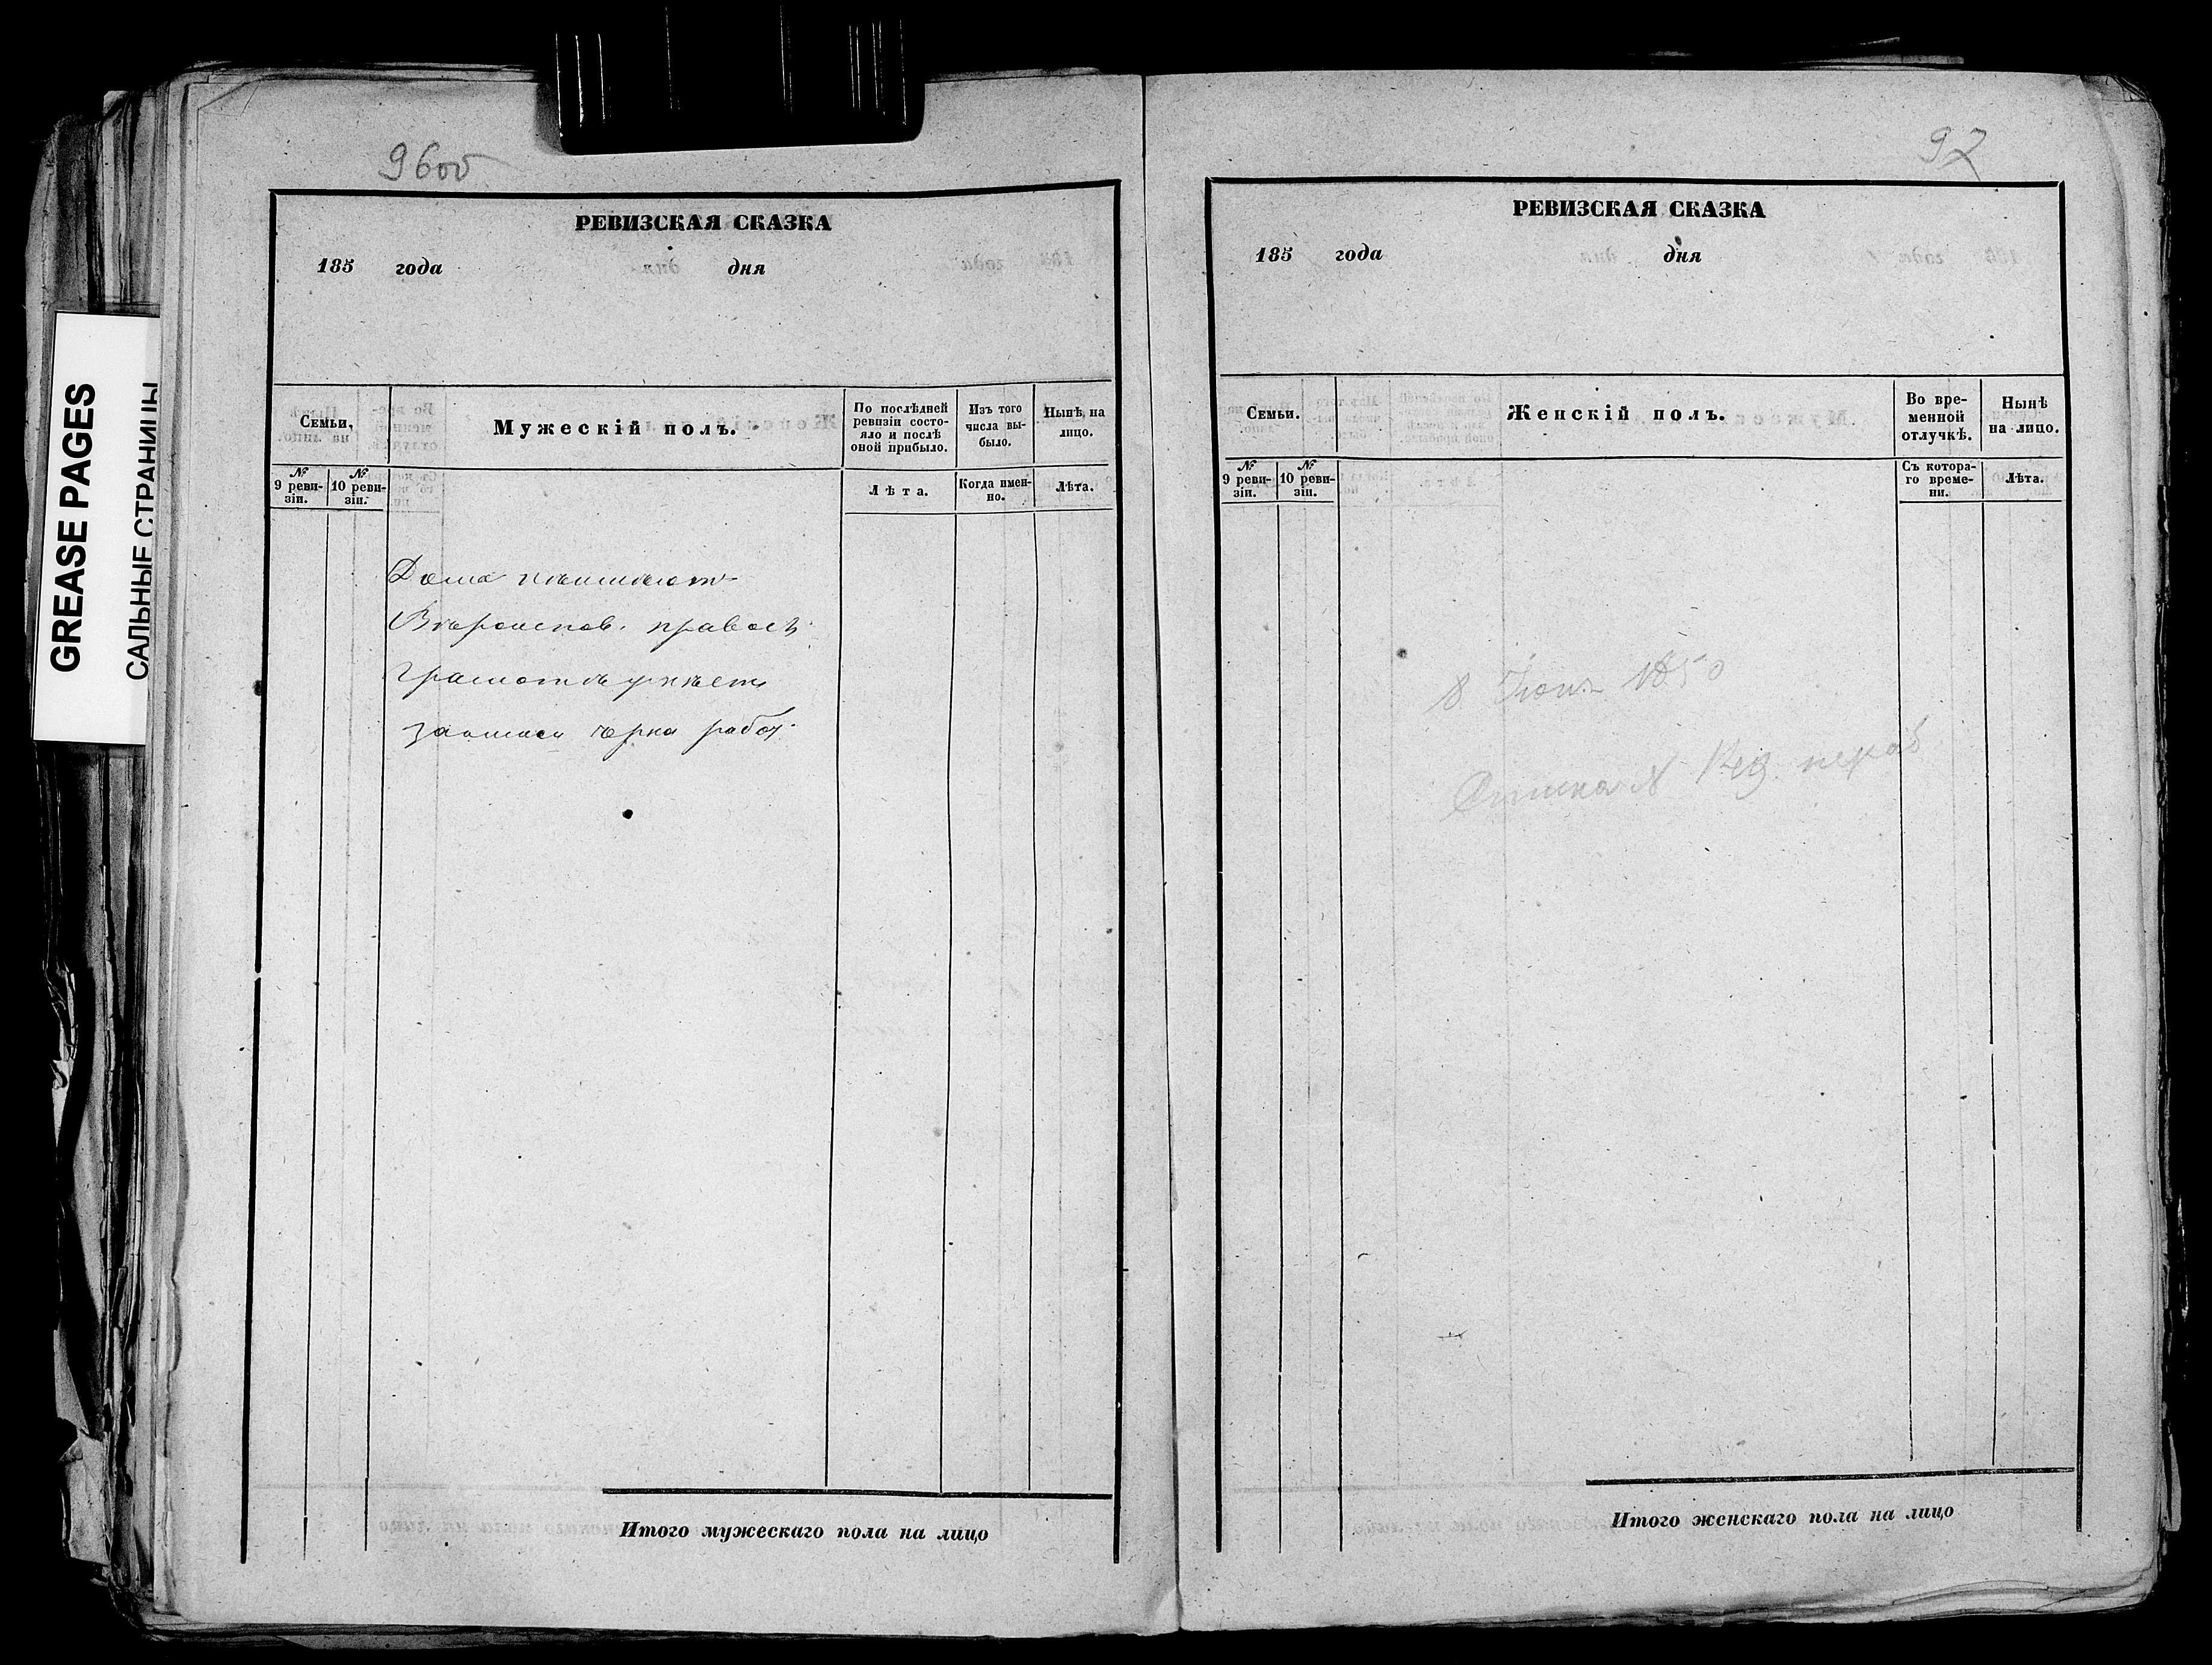 GREASE PAGES
САЛЬНЫЕ СТРАНИЦЫ
96об
РЕВИЗСКАЯ СКАЗКА
185 года дня
Семьи,
Мужескій полъ.
По послѣдней ревизіи состояло и послѣ оной прибыло.
Изъ того числа выбыло.
Нынѣ на лицо.
№ 9 ревизіи.
№ 10 ревизіи.
Лѣта.
Когда именно.
Лѣта.
Дома
Вѣроисповѣ. правосл.
Грамотѣ умѣетъ
черно работ.
Итого мужескаго пола на лицо
97
РЕВИЗСКАЯ СКАЗКА
185 года дня
Семьи.
Женскій полъ.
Во временной отлучкѣ.
Нынѣ на лицо.
№ 9 ревизіи.
№ 10 ревизіи.
Съ котораго времени.
Лѣта.
8 1850
Итого женскаго пола на лицо